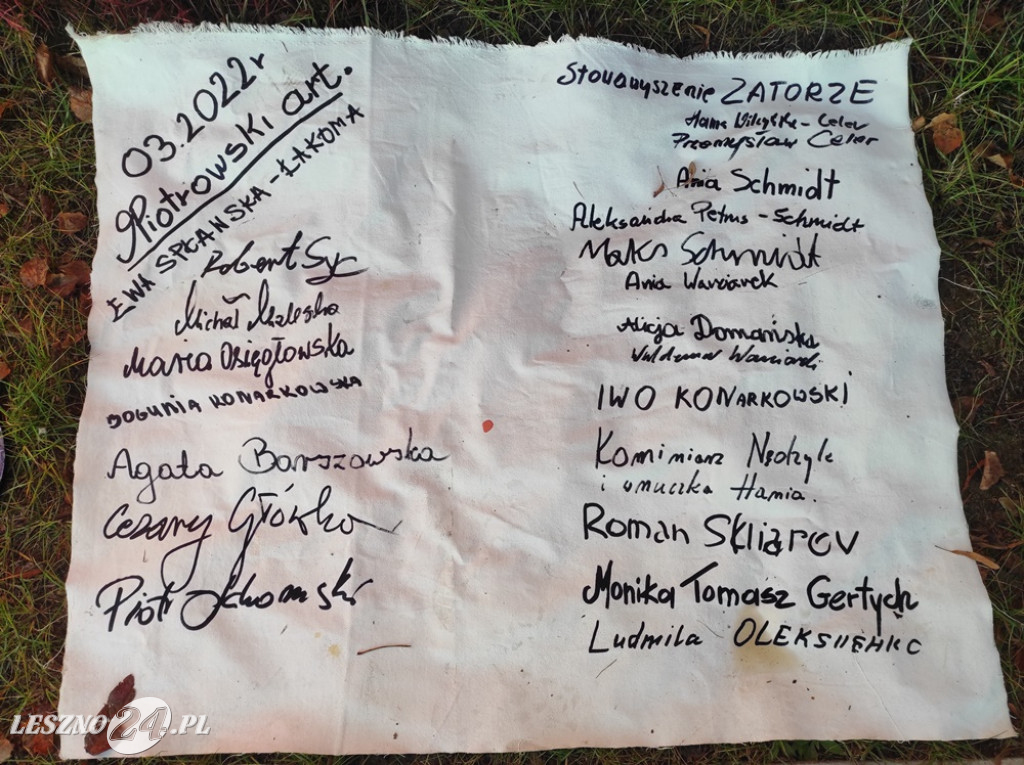 03.2022r
Piotrowski art.
EWA SPŁAŃSKA-ŁAKOMA
Robert Syc
Michał
Maria Osięgłowska
BOGUNIA KONARKOWSKA
Agata Barszowska
Cezary Główko
Piotr
Stowarzyszenie ZATORZE
Hanna Celer
Przemysław Celer
Ania Schmidt
Aleksandra Petrus-Schmidt
Maks Schmidt
Ania
Alicja Domańska
Waldemar
IWO KONARKOWSKI
Kominiarz
i wnuczka Hania.
Roman Skliarov
Monika Tomasz Gertych
Ludmila
LESZNO24.PL